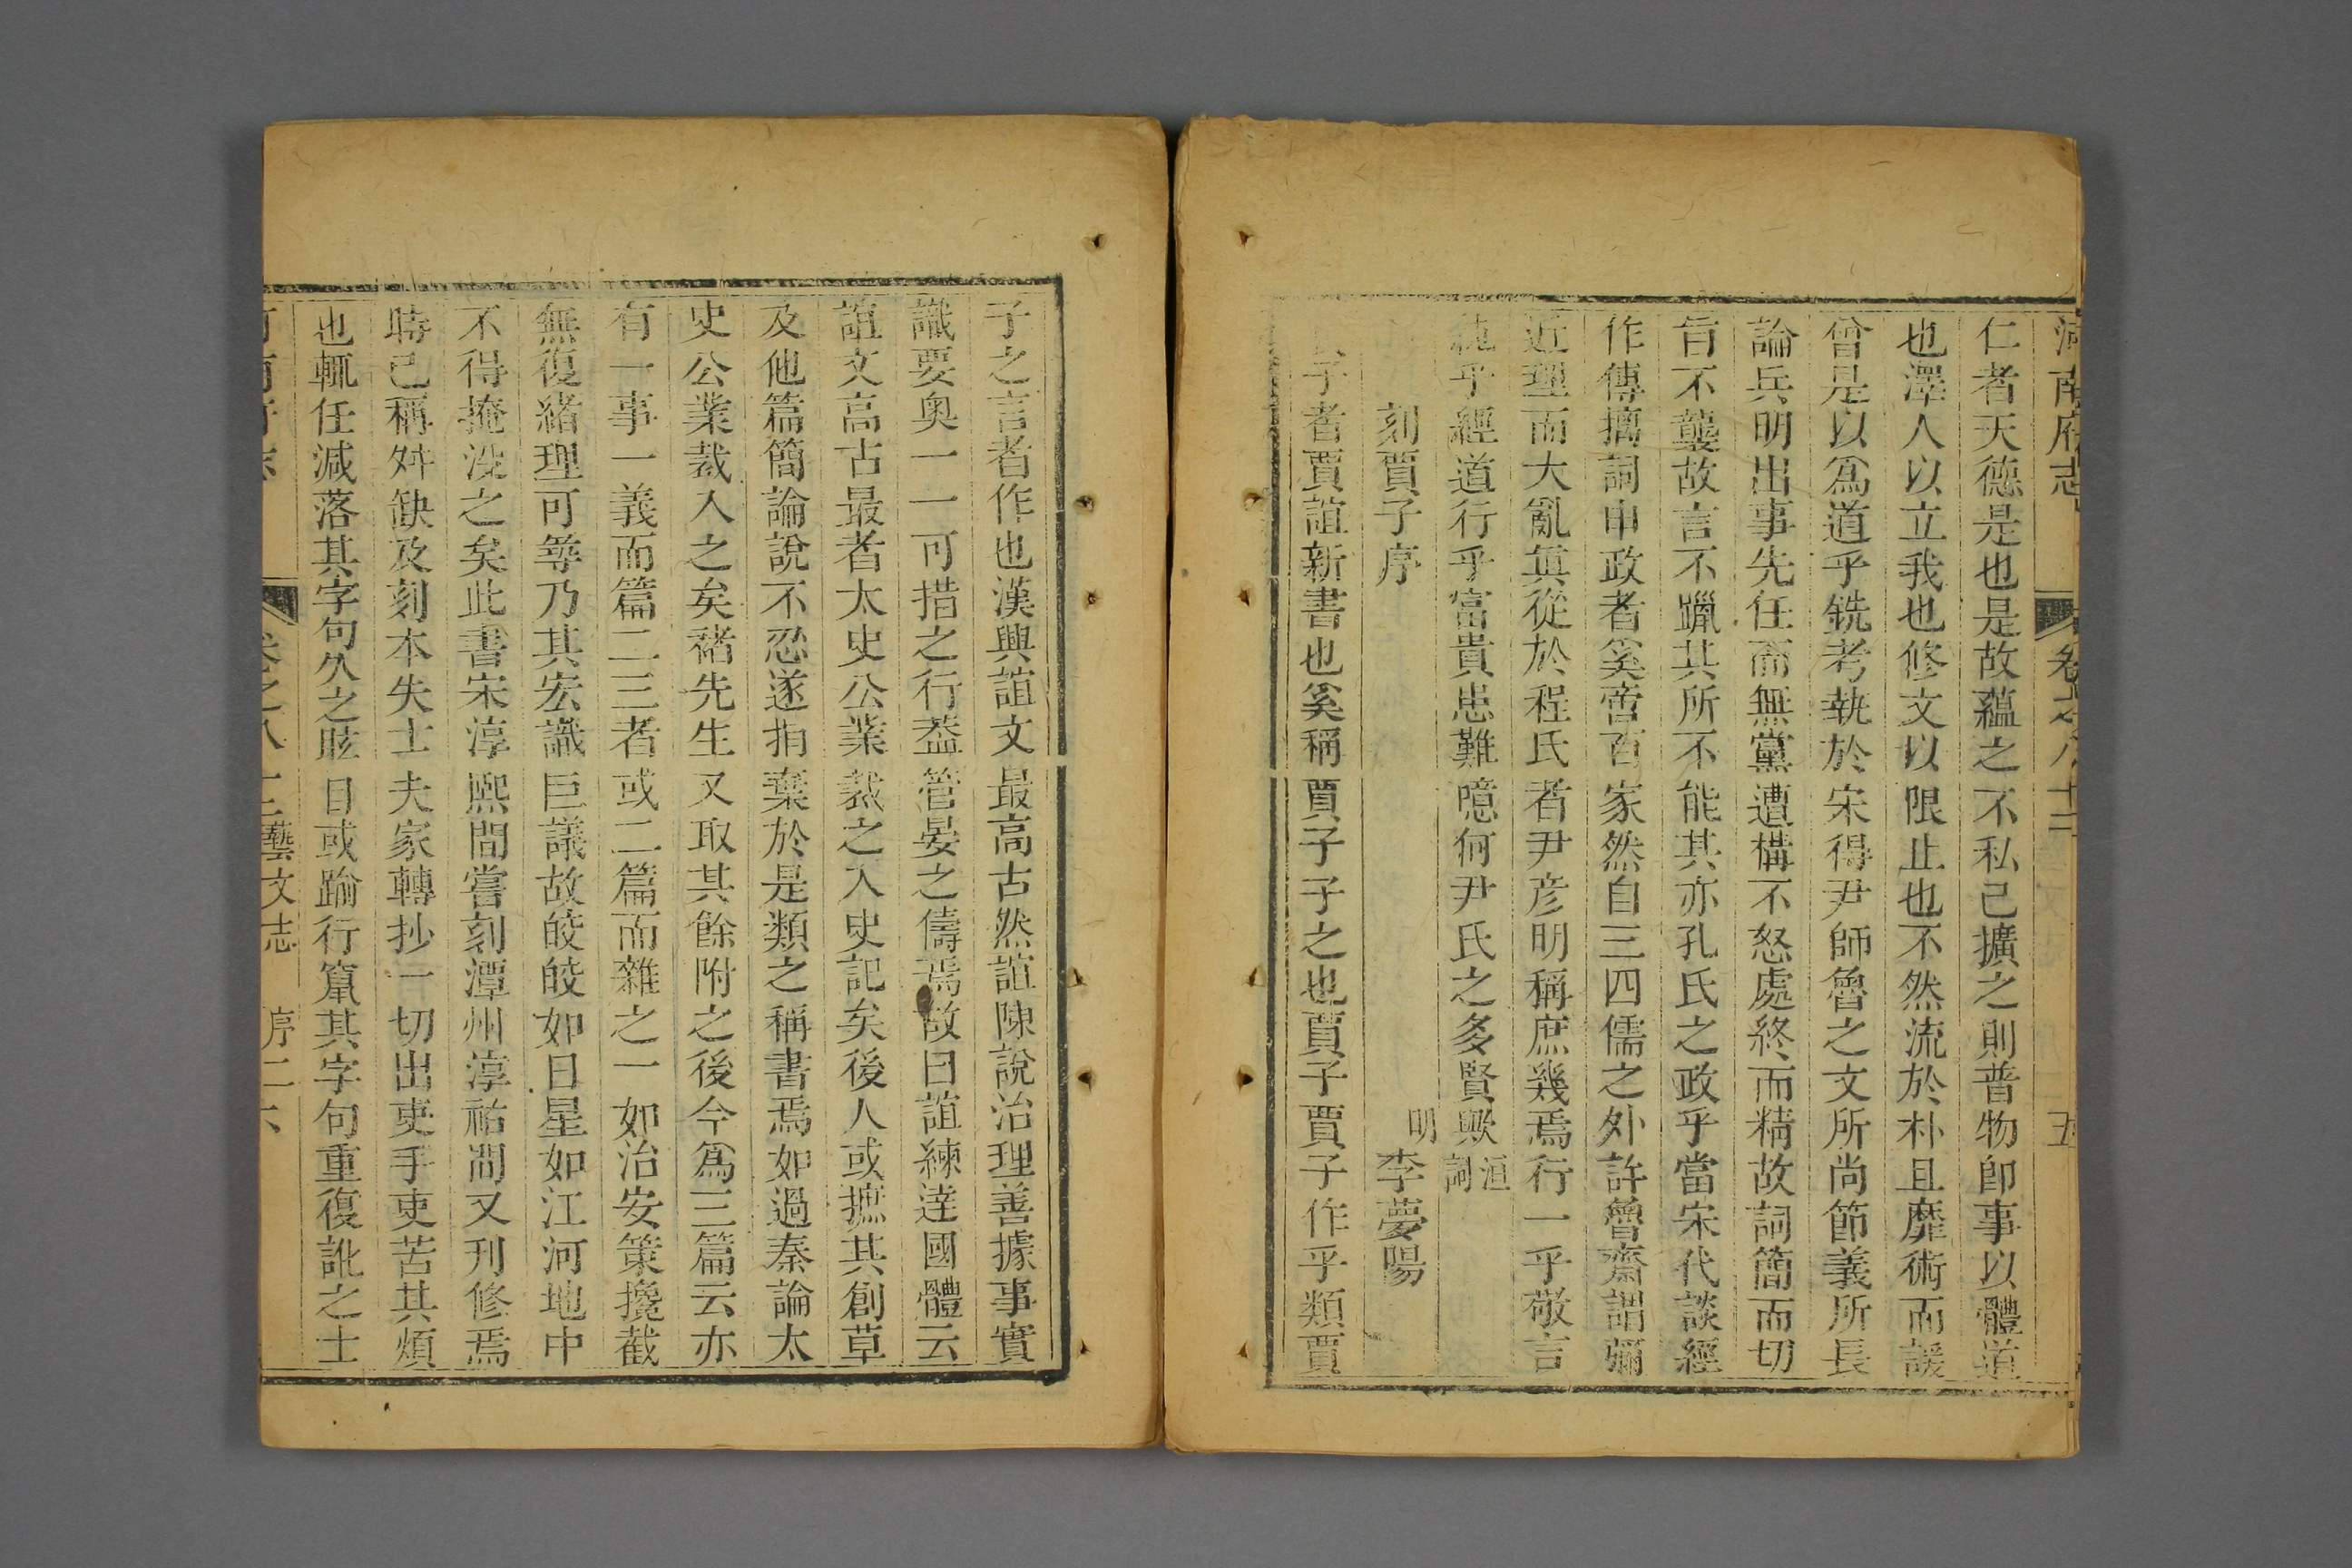 河南府志 卷之八十二 五
仁者天德是也是故蘊之不私己擴之則普物卽事以體道
也澤人以立我也修文以限止也不然流於朴且靡術而諼
曾是以爲道乎銑考執於宋得尹師魯之文所尚節義所長
論兵明出事先任而無黨遭構不怒處終而精故詞簡而切
旨不襲故言不躐其所不能其亦孔氏之政乎當宋代談經
作傳摛詞申政者奚啻百家然自三四儒之外許魯齋謂彌
近理而大亂眞從於程氏者尹彦明稱庶幾焉行一乎敬言
純乎經道行乎富貴患難噫何尹氏之多賢歟 洹詞
刻賈子序 明 李夢陽
子者賈誼新書也奚稱賈子子之也賈子賈子作乎類賈
子之言者作也漢興誼文最高古然誼陳說治理善據事實
識要奥一一可措之行葢管晏之儔焉故曰誼練達國體云
誼文高古最者太史公業裁之入史記矣後人或摭其創草
及他篇簡論說不忍遂捐棄於是類之稱書焉如過秦論太
史公業裁入之矣褚先生又取其餘附之後今爲三篇云亦
有一事一義而篇二三者或二篇而雜之一如治安策攙截
無復緒理可尋乃其宏識巨議故皎皎如日星如江河地中
不得掩没之矣此書宋淳熙間嘗刻潭州淳祐間又刊修焉
時已稱舛缺及刻本失士夫家轉抄一切出吏手吏苦其煩
也輒任減落其字句久之眩目或踰行竄其字句重復訛之士
卷之八十二藝文志 序二 六